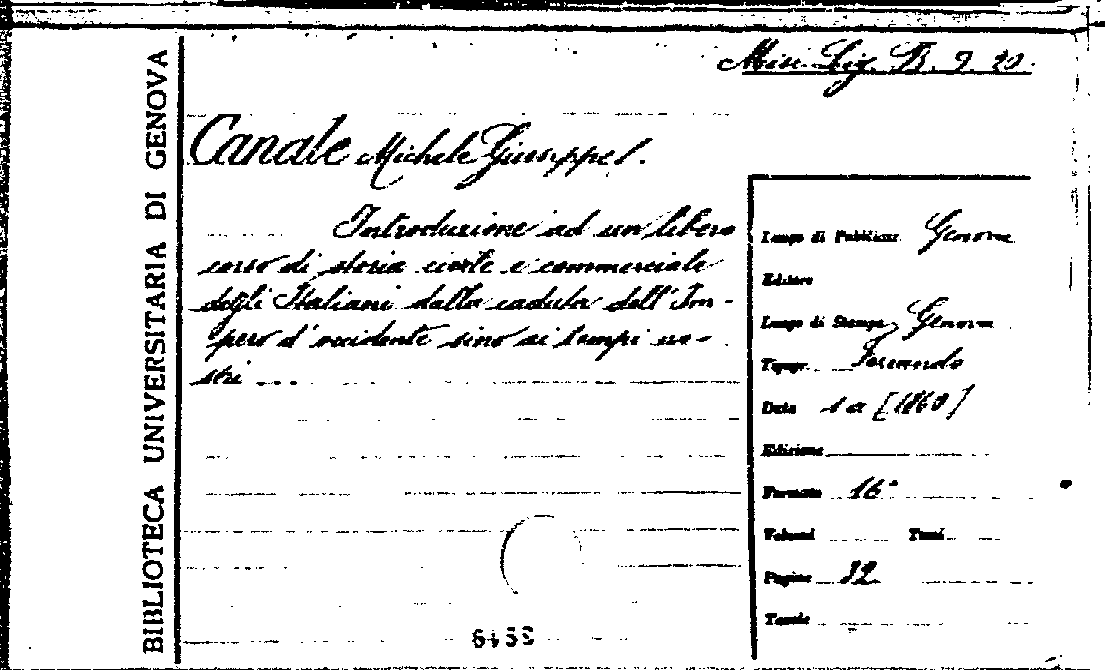 BIBLIOTECA UNIVERSITARIA DI GENOVA
Misc. Lig. B. 9. 20.
Canale Michele Giuseppe.
Introduzione ad un libero
corso di storia civile e commerciale
degli Italiani dalla caduta dell'Im-
pero d'occidente sino ai tempi no-
stri ...
Luogo di Pubblicaz. Genova
Editore
Luogo di Stampa, Genova
Tipogr.
Data s a [1860]
Edizione
Formato 16°
Volumi Tomi
Pagine 32
Tavole